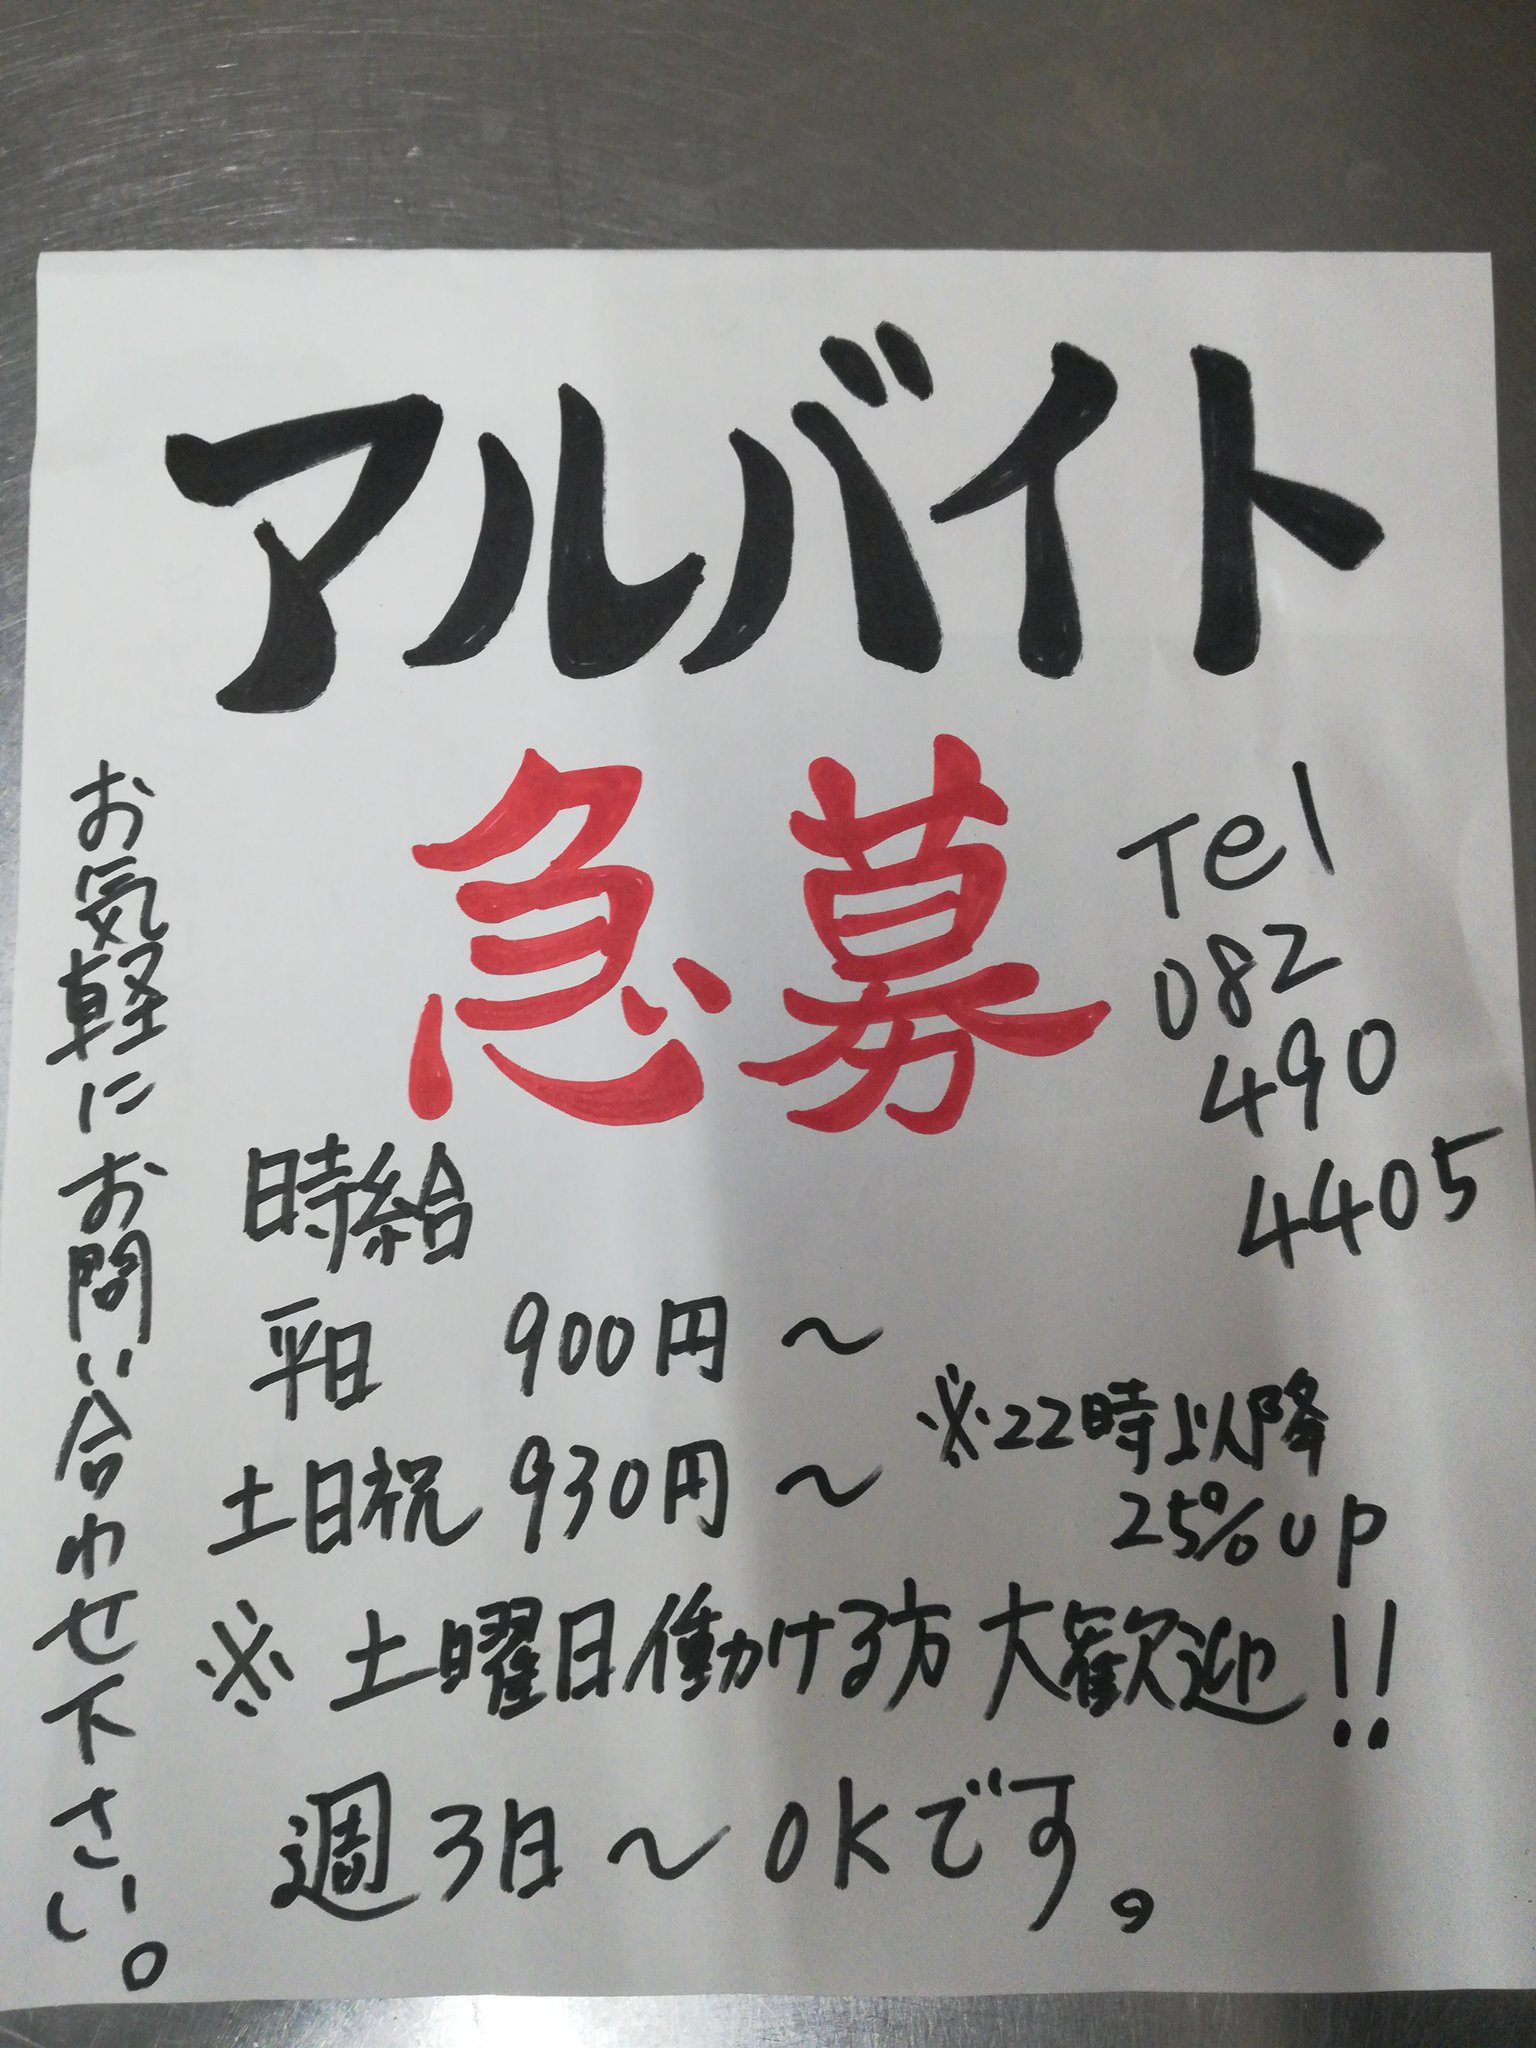 アルバイト
急募
Tel
082
490
4405
時給
平日 900円～
土日祝 930円～
※22時以降
25%up
※土曜日働ける方大歓迎!!
週3日～OKです。
お気軽にお問い合わせ下さい。